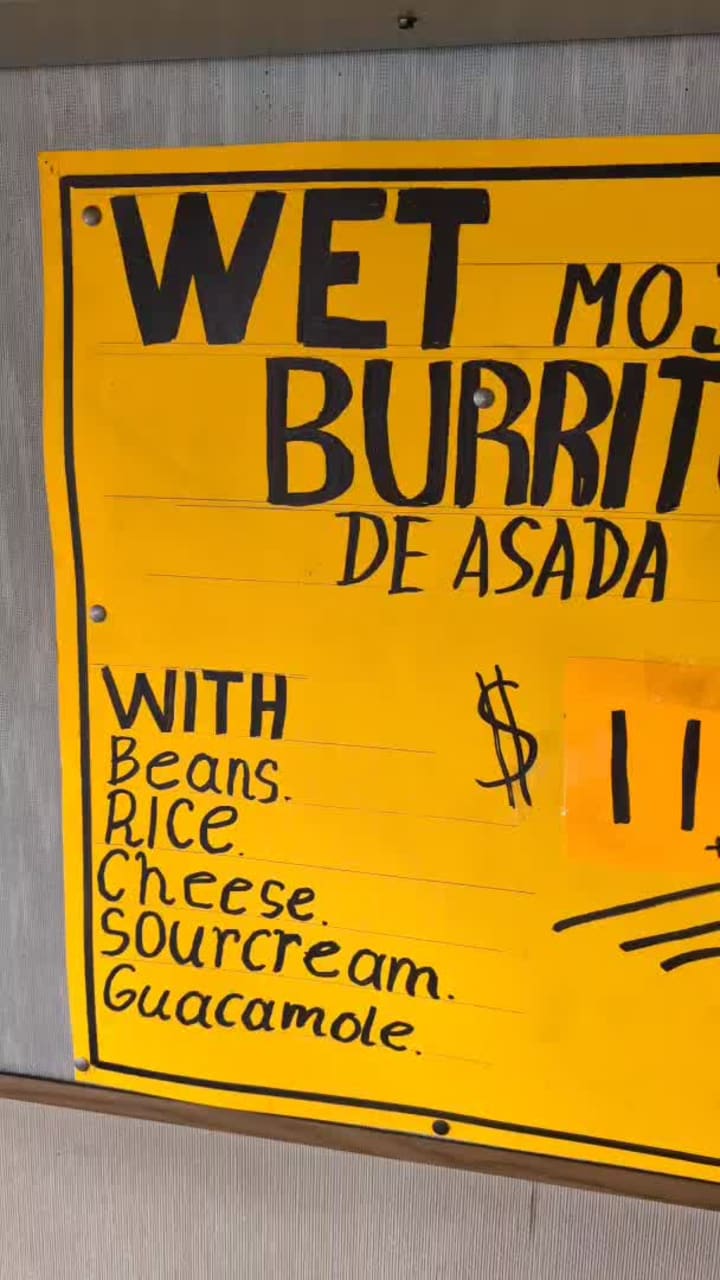 WET
BURRIT
DE ASADA
WITH
Beans.
Rice.
Cheese.
Sourcream.
Guacamole.
$ 11